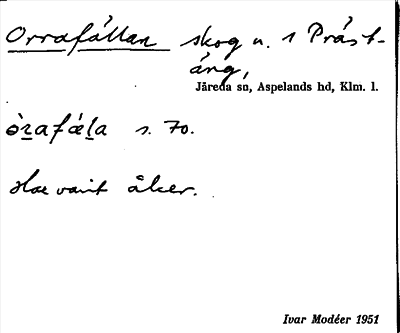 Orrafällan skog n. 1 Präst-
äng,
Järeda sn, Aspelands hd, Klm. l.
òrafǽla s. 70.
Har varit åker.
Ivar Modéer 1951